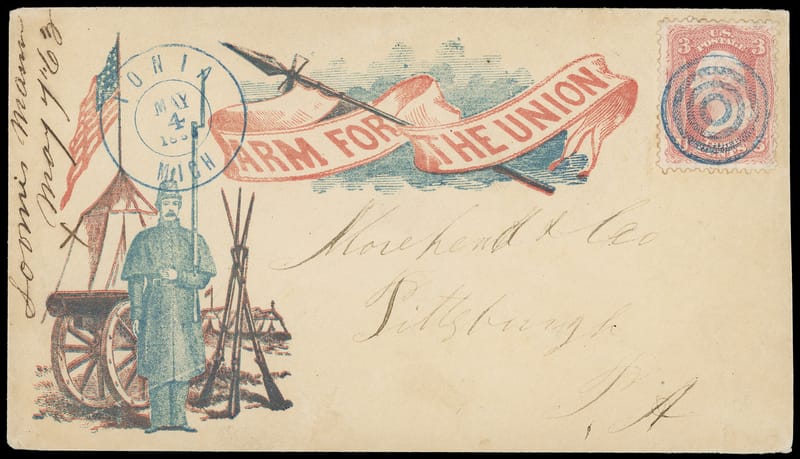 Loomis Mann
May 4 63
IONIA
MAY
4
MICH
ARM FOR THE UNION
3 U.S. 3
POSTAGE
Morehead & Co
Pittsburgh
PA